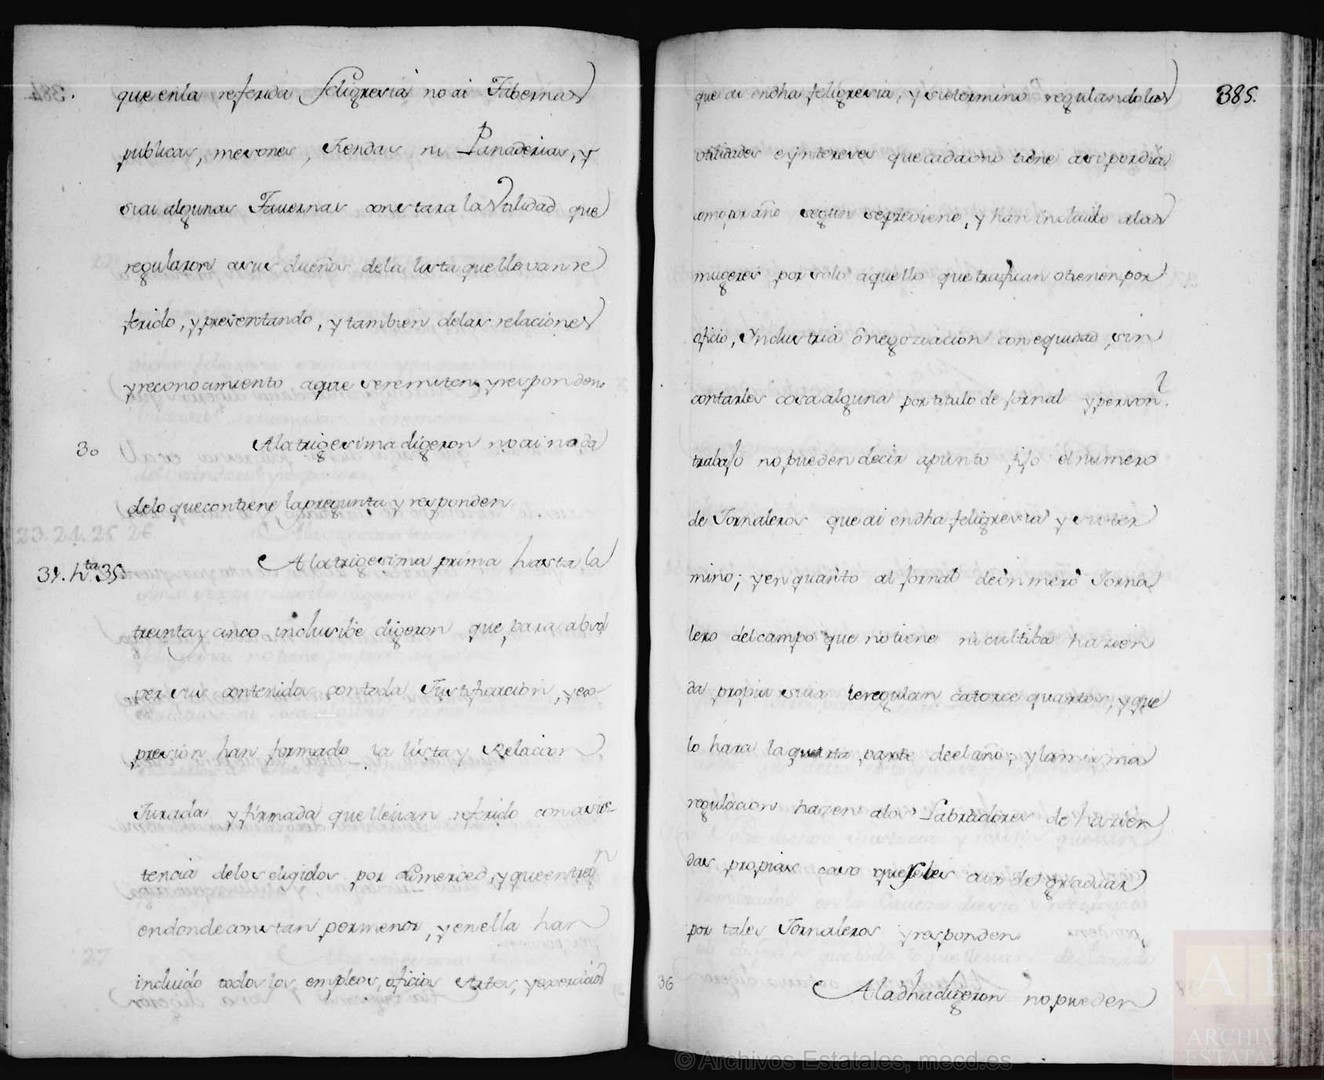 que enla referida feligresia no ai Tabernas
publicas, mesones, tiendas ni Panaderias, y
si ai algunas Tauernas constara la Vtilidad que
regularon asus dueños dela lista que lleuan re
ferido, y presentando, y tambien delas relaciones
y reconocimiento aque seremiten, y responden
30
Ala trigesima digeron no ai nada
delo que contiene la pregunta y responden
31. hta 35
Ala trigesima prima hasta la
treinta y cinco inclusibe digeron que para absol
ver sus contenidos con toda Justificacion, y ex
presion han formado la lista y Relacion
Jurada y firmada que lleuan referido con asis
tencia delos elegidos por su merced, y que entregn
en donde constan por menor, y en ella han
incluido todos los empleos, oficios artes, y exercicios
385.
que ai endha feligresia, y su termino regulandoles
vtilidades e yntereses que cada uno tiene asi por dia
como por año segun se preuiene, y han incluido alas
mugeres por solo aquello que trafican o tienen por
oficio, Yndustria o negoziacion con equidad, sin
contarles cosa alguna por titulo de jornal y person.l
trabajo no pueden decir apunto fijo el numero
de Jornaleros que ai endha feligresia y su ter
mino; y en quanto al jornal de un mero Jorna
lero del campo que no tiene ni cultiba hazien
da propia suia le regulan catorce quartos, y que
lo hara la quarta parte de el año; y la misma
regulacion hazen alos Labradores de hazien
das propias caso que seles aia de graduar
por tales Jornaleros y responden
36
Ala dha digeron no pueden
© Archivos Estatales, mecd.es
ARCHIVOS
ESTATALES